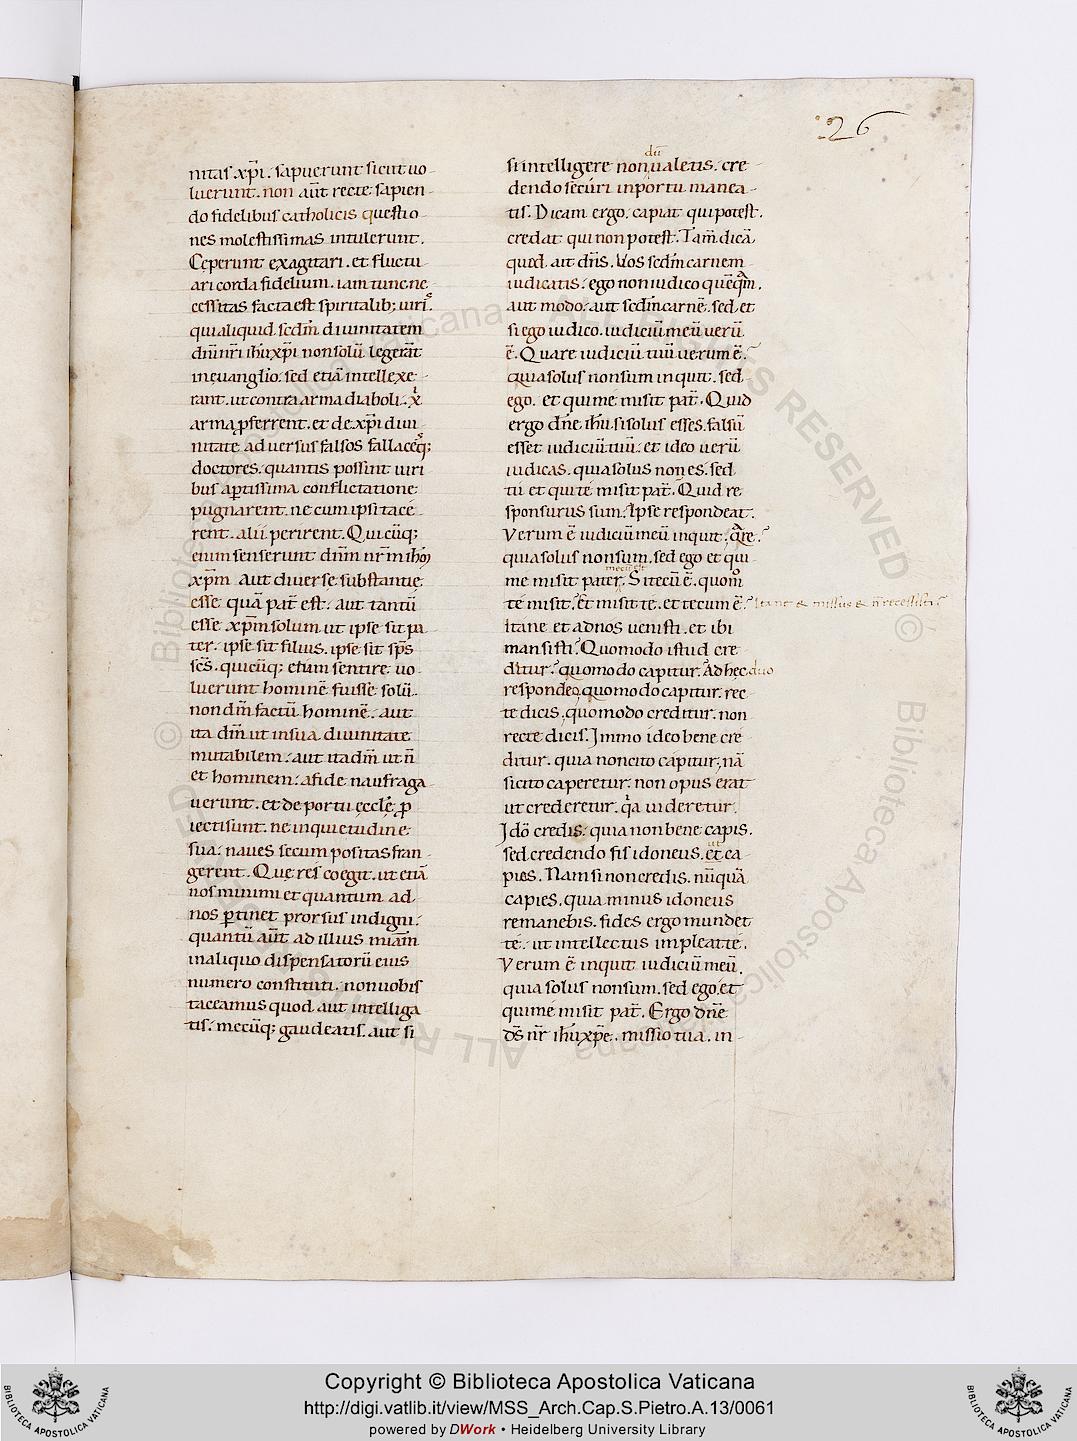 26
nitas xp̄i. sapuerunt sicut uo-
luerunt. non aut̄ recte sapien-
do fidelibus catholicis questio-
nes molestissimas intulerunt.
Cęperunt exagitari. et fluctu-
ari corda fidelium. iam tunc ne-
cessitas facta est spiritalib; uiris.
qui aliquid. secdm̄ diuinitatem
dnī nrī ihū xp̄i non solū legerant
in euanglio. sed etiā intellexe-
rant. ut contra arma diaboli. xp̄i
arma pferrent. et de xp̄i diui-
nitate aduersus falsos fallacesq;
doctores. quantis possint uiri-
bus aptissima conflictatione
pugnarent. ne cum ipsi tace-
rent. alii perirent. Quicūq;
enim senserunt dnm̄ nrm̄ ihm̄
xpm̄ aut diuerse substantie
esse quā pat̄ est. aut tantū
esse xpm̄ solum ut ipse sit pa-
ter. ipse sit filius. ipse sit sp̄s
sc̄s. quicūq; etiam sentire uo-
luerunt hominē fuisse solū.
non dm̄ factū hominē. aut
ita dm̄ ut in sua diuinitate
mutabilem. aut ita dm̄ ut n̄
et hominem. a fide naufraga-
uerunt. et de portu ęccle p-
iecti sunt. ne inquietudine
sua. naues secum positas fran-
gerent. Que res coegit. ut etiā
nos minimi et quantum ad
nos ptinet prorsus indigni.
quantū aut̄ ad illius miam̄
in aliquo dispensatorū eius
numero constituti. non uobis
taceamus quod aut intelliga-
tis. mecūq; gaudeatis. aut si
dū
si intelligere non ualetis. cre-
dendo securi in portu manea-
tis. Dicam ergo. capiat qui potest.
credat qui non potest. Tam̄ dicā
quod ait dn̄s. Uos secdm̄ carnem
iudicatis. ego non iudico quēqm̄.
aut modo. aut secdm̄ carnē. sed et
si ego iudico. iudiciū meū uerū
ē. Quare iudiciū tuū uerum ē?
quia solus non sum inquit. sed
ego. et qui me misit pat̄. Quid
ergo dn̄e ihū. si solus esses. falsū
esset iudiciū tuū. et ideo uerū
iudicas. quia solus non es. sed
tu et qui te misit pat̄. Quid re-
sponsurus sum. Ipse respondeat.
Verum ē iudiciū meū inquit. qre?
quia solus non sum. sed ego et qui
mecū est
me misit pater. Si tecū ē. quom̊
te misit? Et misit te. et tecum ē? Itane & missus & n̄ recessisti?
Itane et ad nos uenisti. et ibi
mansisti? Quomodo istud cre-
ditur? quomodo capitur? Ad hęc duo
respondeo. quomodo capitur. rec-
te dicis. quomodo creditur. non
recte dicis. Immo ideo bene cre-
ditur. quia non cito capitur. nā
si cito caperetur. non opus erat
ut crederetur. qa uideretur.
Idō credis. quia non bene capis.
ut
sed credendo fis idoneus. et ca-
pies. Nam si non credis. nūquā
capies. quia minus idoneus
remanebis. fides ergo mundet
te. ut intellectus impleat te.
Verum ē inquit iudiciū meū.
quia solus non sum. sed ego. et
qui me misit pat̄. Ergo dn̄e
ds̄ nr̄ ihū xp̄e. missio tua. in-
© Biblioteca Apostolica Vaticana ALL RIGHTS RESERVED
© Biblioteca Apostolica Vaticana ALL RIGHTS RESERVED
BIBLIOTECA APOSTOLICA VATICANA
Copyright © Biblioteca Apostolica Vaticana
http://digi.vatlib.it/view/MSS_Arch.Cap.S.Pietro.A.13/0061
powered by DWork • Heidelberg University Library
BIBLIOTECA APOSTOLICA VATICANA